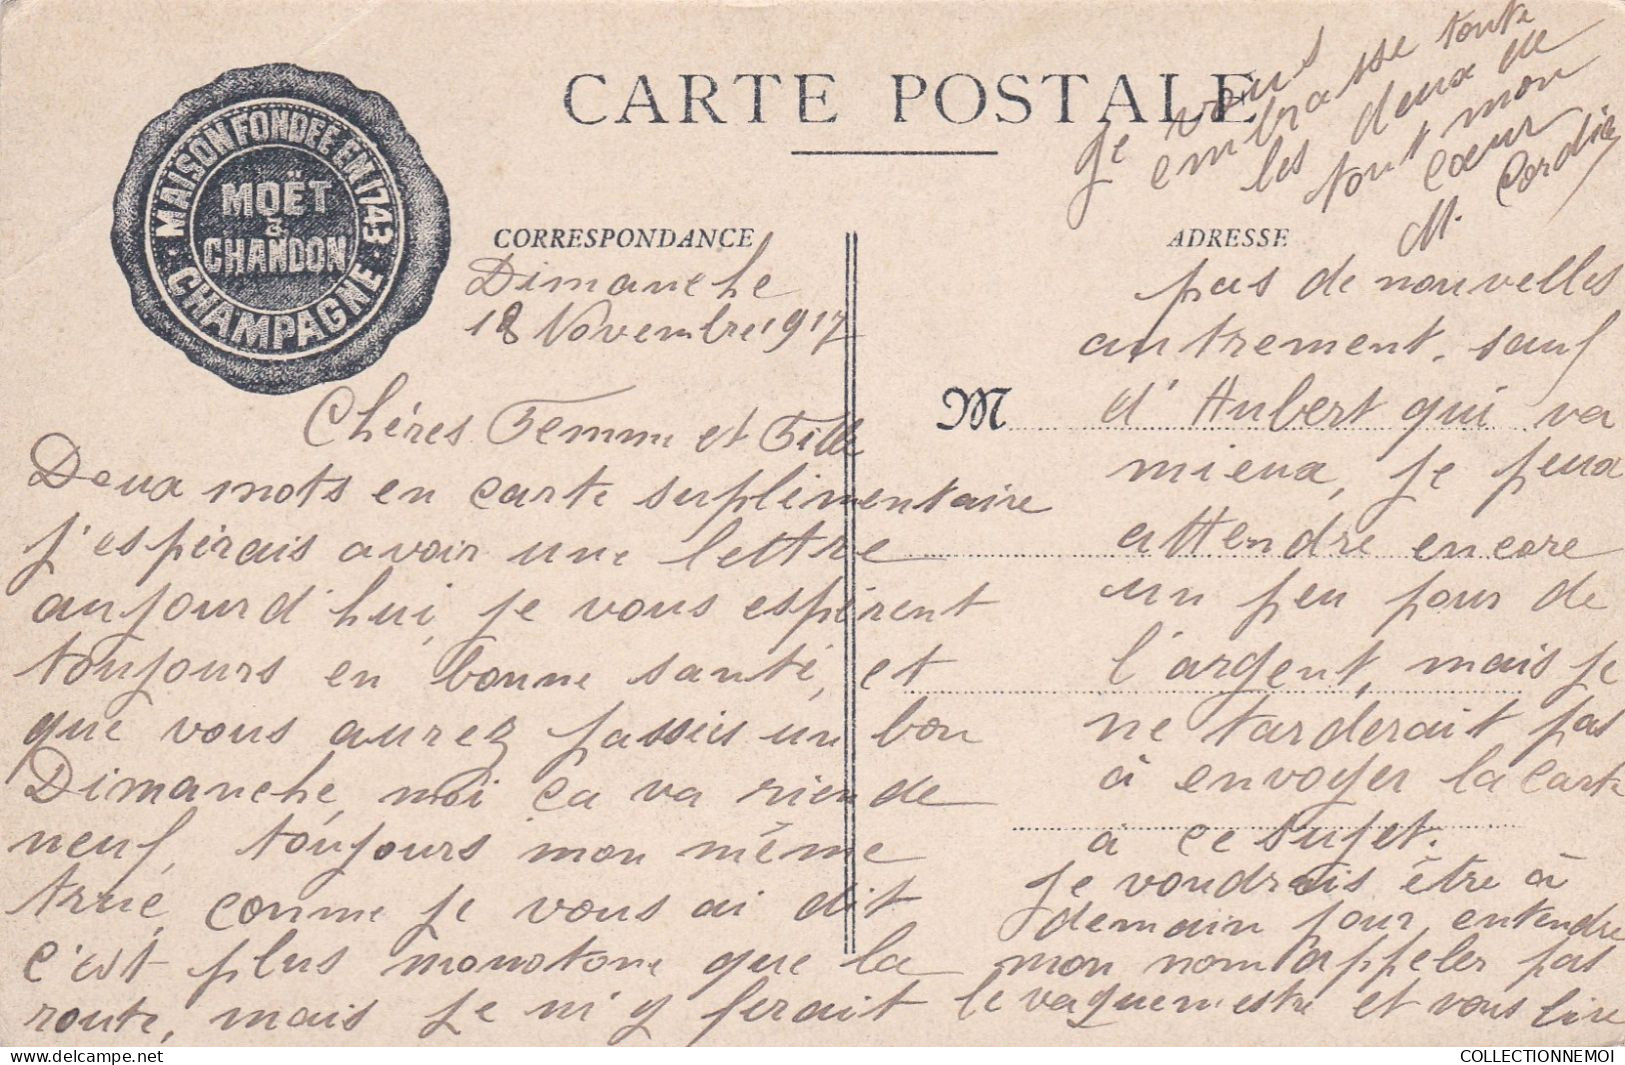 MAISON FONDÉE EN 1743
MOËT
&
CHANDON
CHAMPAGNE
CARTE POSTALE
CORRESPONDANCE
ADRESSE
M
Dimanche
18 Novembre 1917
Chéres Femme et Fille
Deux mots en carte suplimentaire
j'espérais avoir une lettre
aujourd'hui, je vous espérent
toujours en bonne santé, et
que vous aurez passées un bon
Dimanche, moi ça va rien de
neuf, toujours mon même
truc, comme je vous ai dit
c'est plus monotone que la
route, mais je m'y ferait
pas de nouvelles
autrement, sauf
d'Hubert qui va
mieux, je peux
attendre encore
un peu pour de
l'argent, mais je
ne tarderait pas
à envoyer la carte
à ce sujet.
Je voudrais être à
demain pour entendre
mon nom appeler pas
le vaguemestre et vous lire
Je vous
embrasse toute
les deux de
tout mon
cœur
M. Cordier
COLLECTIONNEMOI